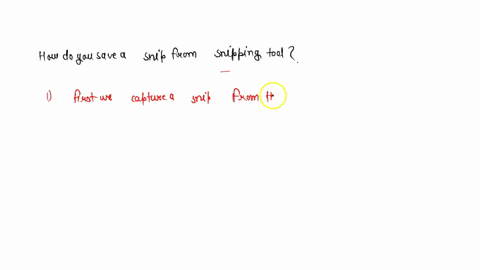 How do you save a snip from snipping tool?
1) first we capture a snip from th